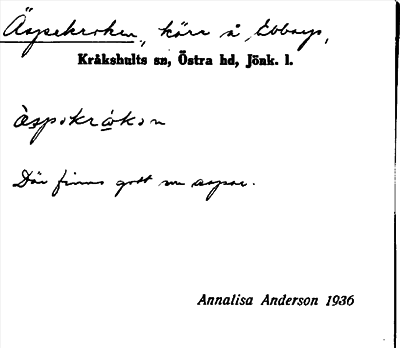 Äspekroken, kärr å Ebbarp,
Kråkshults sn, Östra hd, Jönk. l.
äspəkrokən
Där finns gott om aspar.
Annalisa Anderson 1936